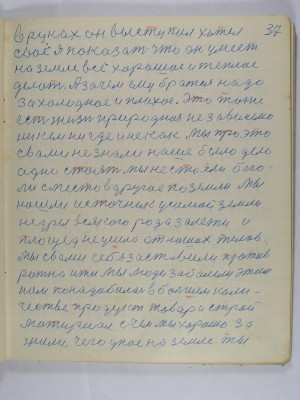 37
в руках он выступил хотел
своё я показат что он умеет
на земле всё харошае и теплае
делат. А зачем ему братся надо
за холоднае и плохае. Это то они
ест жизн природная не зависемо
ни кем ни где и не как мы про это
с вами не знали наше было дело
адно стоят мы не стояли бего-
ли с место в другае по земли мы
нашли источник у самой земли
недры всякого рода залежи и
площед не ушло от наших
мы с вами себя заставели против
ратно ити мы люди забалели этим
нам понадобилас в болшем коли-
честве продукт товар и строй
материал с чем мы харашо за
жили чего у нас на земле ты